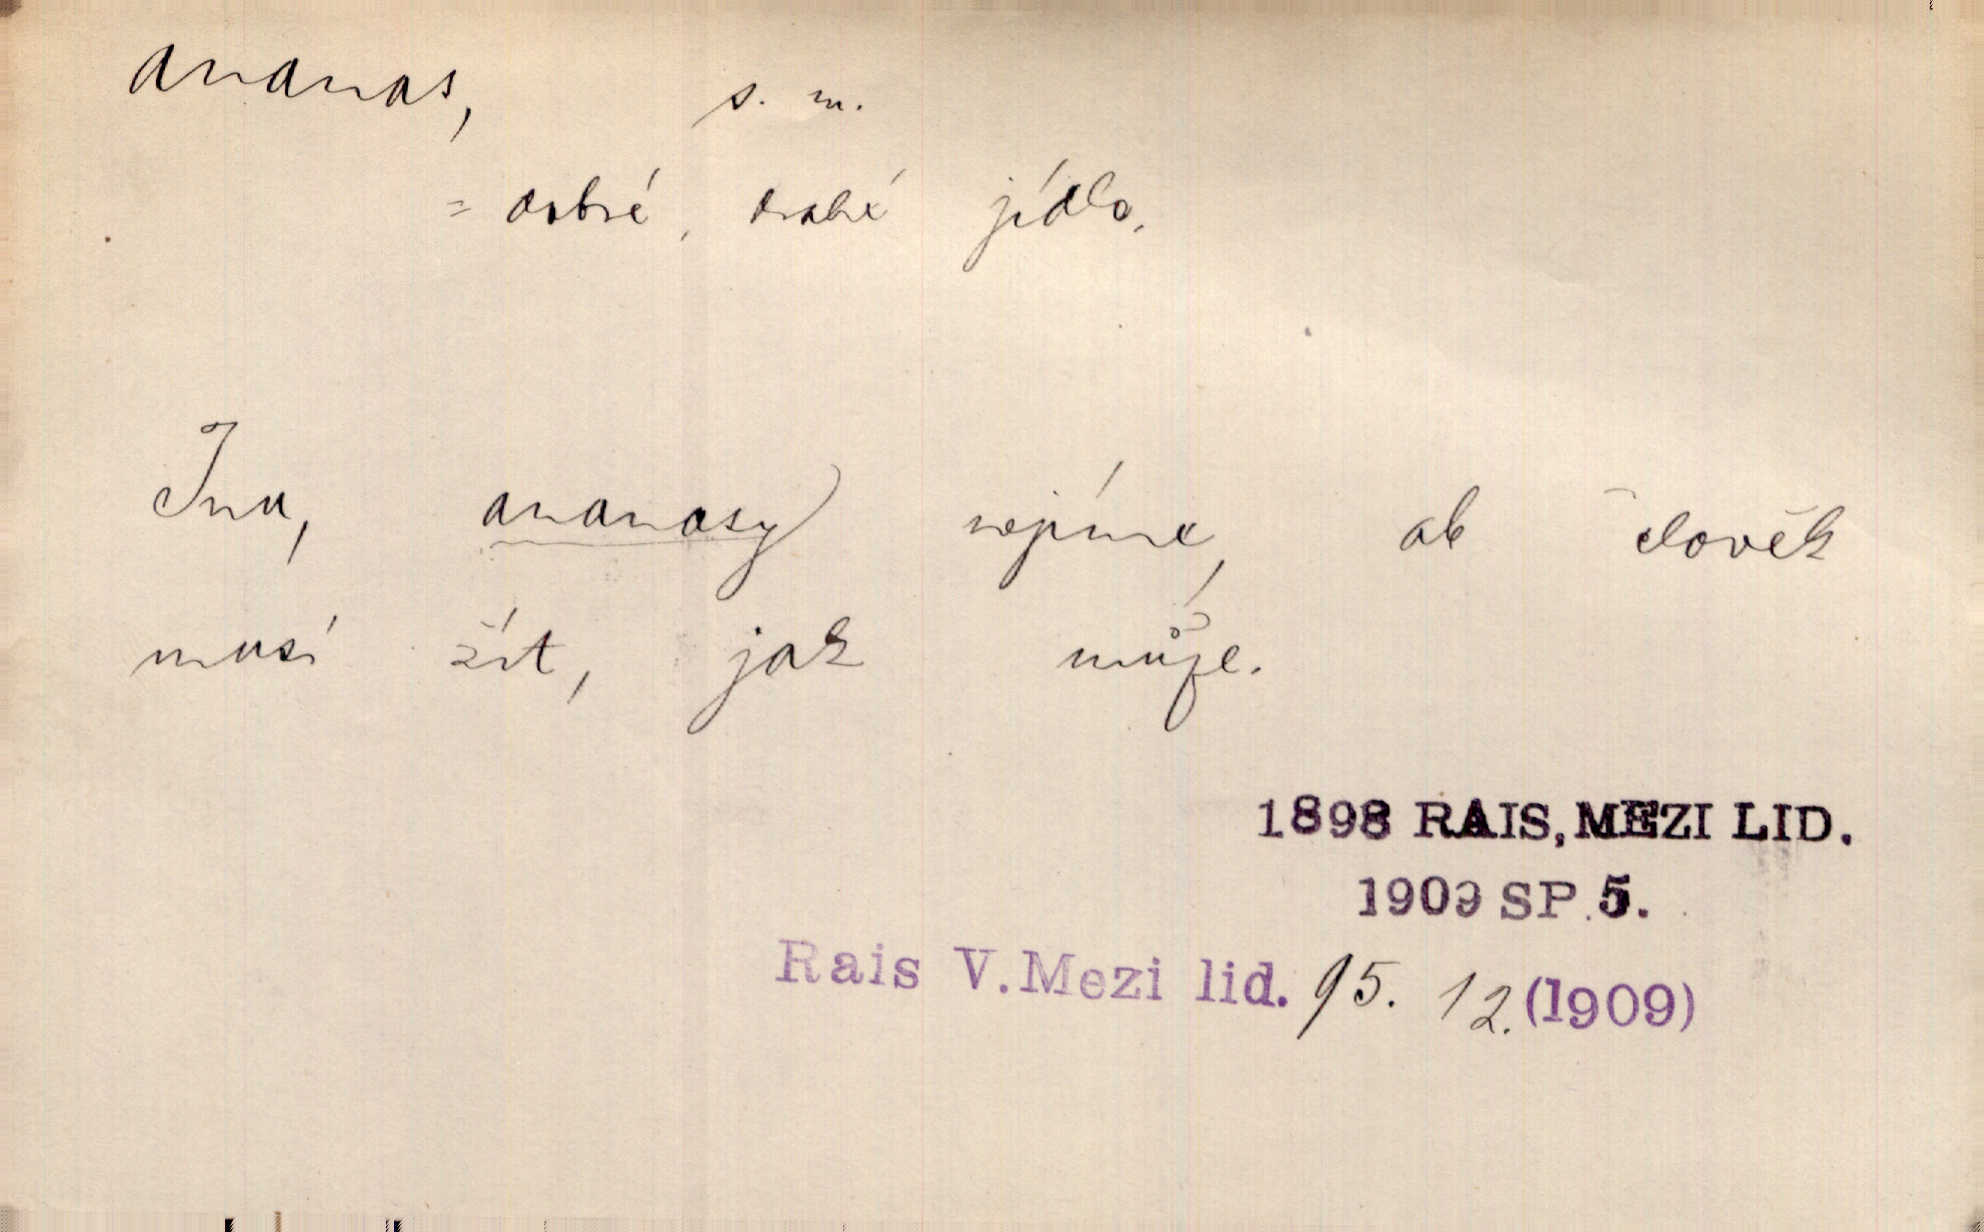 ananas, s. m.
= dobré, drahé jídlo.
Inu, ananasy nejíme, ale člověk
musí žít, jak může.
1898 RAIS, MEZI LID.
1909 SP.5.
Rais V.Mezi lid. 95. 12.(1909)